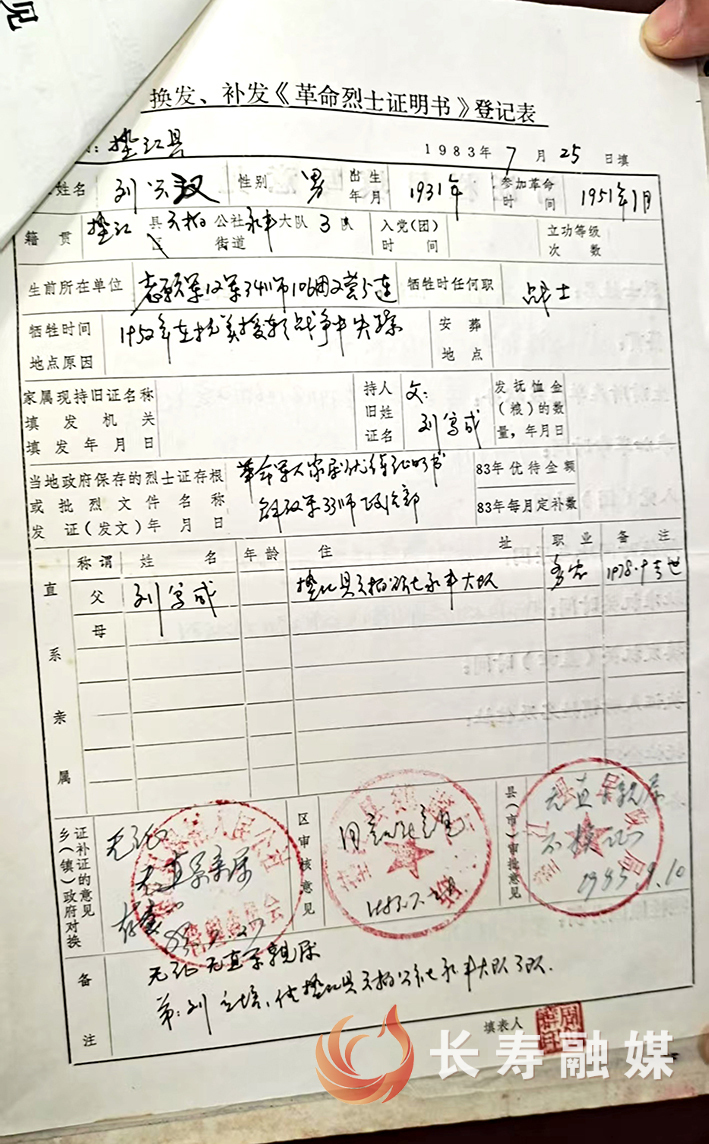 见
换发、补发《革命烈士证明书》登记表
垫江县 1983年7月25日填
姓名 刘兴汉 性别 男 出生年月 1931年 参加革命时间 1951年1月
籍贯 垫江县区 公社街道 永丰大队3队 入党(团)时间 立功等级次数
生前所在单位 志愿军12军34师106团2营5连 牺牲时任何职 战士
牺牲时间地点原因 1952年在抗美援朝战争中失踪 安葬地点
家属现持旧证名称填发机关填发年月日 持人旧姓证名 父:刘写成 发抚恤金(粮)的数量,年月日
当地政府保存的烈士证存根或批烈文件名称发证(发文)年月日 革命军人家属优待证明书 83年优待金额
解放军33师政治部 83年每月定补数
直系亲属 称谓 姓名 年龄 住址 职业 备注
父 刘写成 垫江县 永丰大队 务农 去世
母
乡(镇)政府对换证补证的意见 无证 无直系亲属
区审核意见 同意 意见
县(市)审批意见 无直系亲属 不换证 1985.9.10
备注 无证无直系亲属
弟:刘 住垫江县 公社永丰大队3队.
填表人
长寿融媒